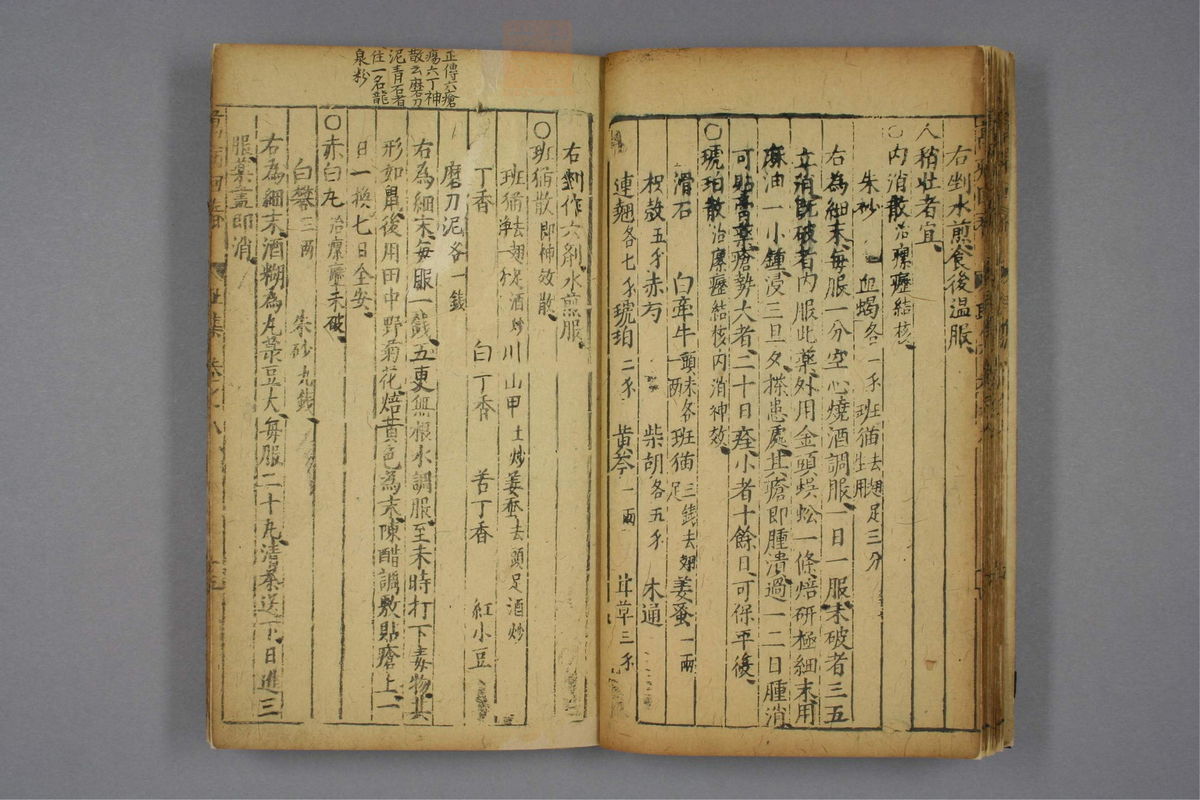 右剉水煎食後温服
人稍壮者宜
○内消散治瘰癧結核
朱砂 血蝎各一分 班猫去翅足三分生用
右為細末毎服一分空心燒酒調服一日一服未破者三五
立消既破者内服此藥外用金頭蜈蚣一條焙研極細末用
麻油一小鍾浸三旦夕搽患處其瘡即腫潰過一二日腫消
可貼膏藥瘡勢大者二十日痊小者十餘日可保平復
○琥珀散治瘰癧結核内消神效
滑石 白牽牛頭末各一兩 班猫三錢去翅足 姜蚕一兩
枳殼五分 赤芍 柴胡各五分 木通
連翹各七分 琥珀二分 黄芩一兩 甘草三分
右剉作六劑水煎服
○班猫散即神效散
班猫去翅足酒炒净一分 川山甲土炒 姜蚕去頭足酒炒
丁香 白丁香 苦丁香 紅小豆
磨刀泥各一錢
右為細末毎服一錢五更無根水調服至未時打下毒物其
形如鼠後用田中野菊花焙黄色為末陳醋調敷貼瘡上一
日一換七日全安
○赤白丸治瘰癧未破
白礬三兩 朱砂九錢
右為細末酒糊為丸菉豆大毎服二十丸清茶送下日進三
服藥盡即消
正傳六瘡
瘍六丁神
散云磨刀
泥青石者
住一名龍
泉粉